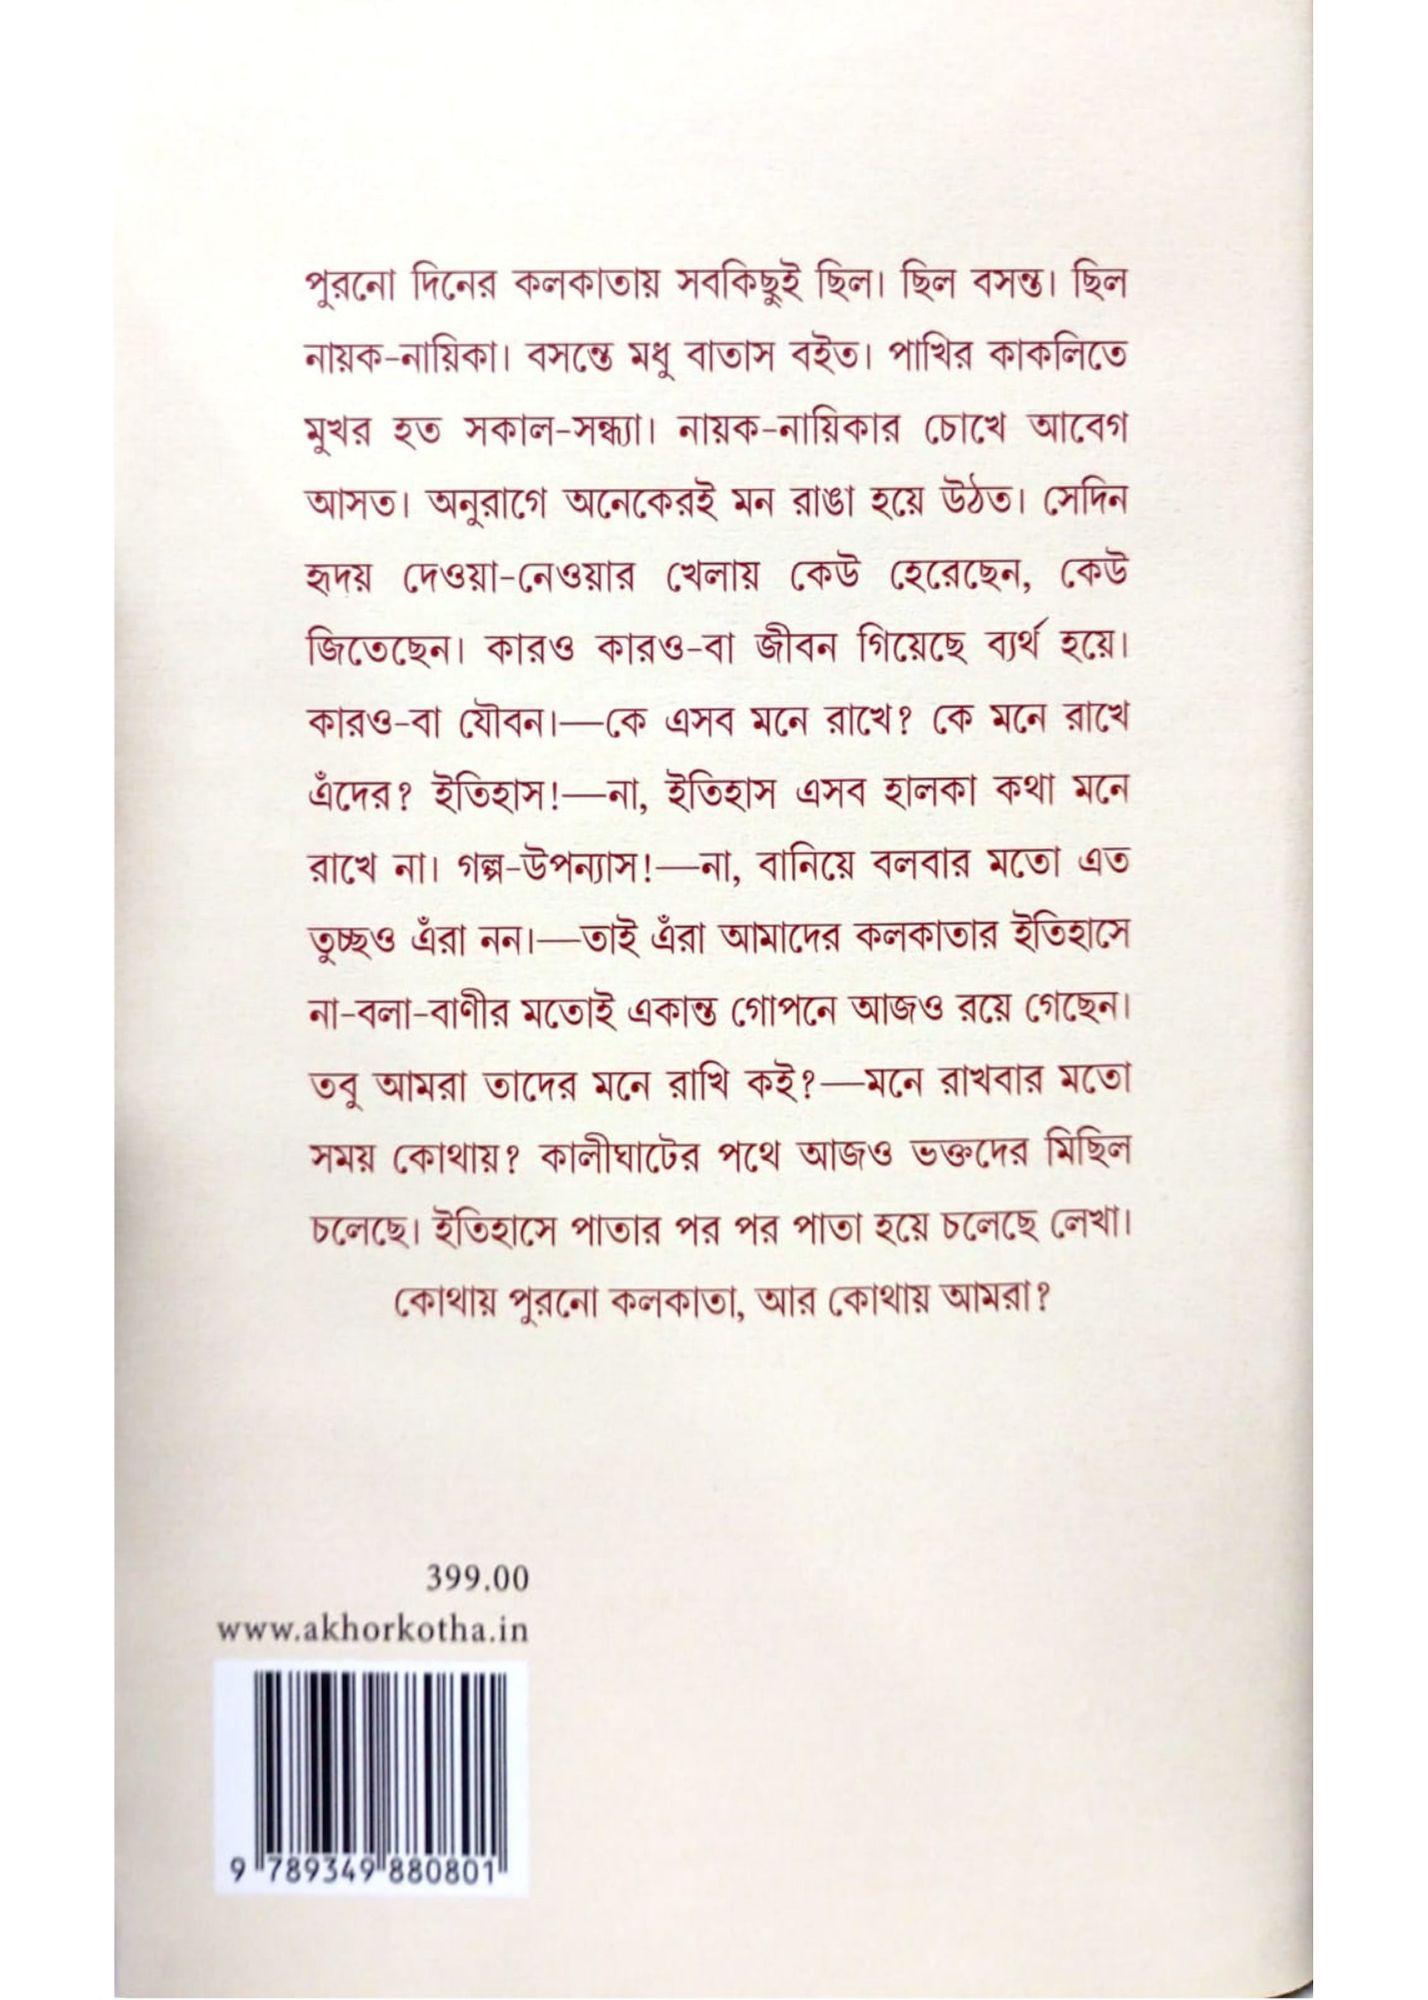 পুরনো দিনের কলকাতায় সবকিছুই ছিল। ছিল বসন্ত। ছিল
নায়ক-নায়িকা। বসন্তে মধু বাতাস বইত। পাখির কাকলিতে
মুখর হত সকাল-সন্ধ্যা। নায়ক-নায়িকার চোখে আবেগ
আসত। অনুরাগে অনেকেরই মন রাঙা হয়ে উঠত। সেদিন
হৃদয় দেওয়া-নেওয়ার খেলায় কেউ হেরেছেন, কেউ
জিতেছেন। কারও কারও-বা জীবন গিয়েছে ব্যর্থ হয়ে।
কারও-বা যৌবন।—কে এসব মনে রাখে? কে মনে রাখে
এঁদের? ইতিহাস!—না, ইতিহাস এসব হালকা কথা মনে
রাখে না। গল্প-উপন্যাস!—না, বানিয়ে বলবার মতো এত
তুচ্ছও এঁরা নন।—তাই এঁরা আমাদের কলকাতার ইতিহাসে
না-বলা-বাণীর মতোই একান্ত গোপনে আজও রয়ে গেছেন।
তবু আমরা তাদের মনে রাখি কই?—মনে রাখবার মতো
সময় কোথায়? কালীঘাটের পথে আজও ভক্তদের মিছিল
চলেছে। ইতিহাসে পাতার পর পর পাতা হয়ে চলেছে লেখা।
কোথায় পুরনো কলকাতা, আর কোথায় আমরা?
399.00
www.akhorkotha.in
9 789349 880801